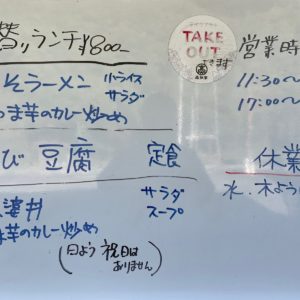 替りランチ ¥800-
そラーメン 小ライス
サラダ
つま芋のカレー炒め
び豆腐 定食
婆丼 サラダ
スープ
ま芋のカレー炒め
(日よう 祝日は
ありません)
TAKE
OUT
できます
営業時
11:30〜
17:00〜
休業
水、木よう